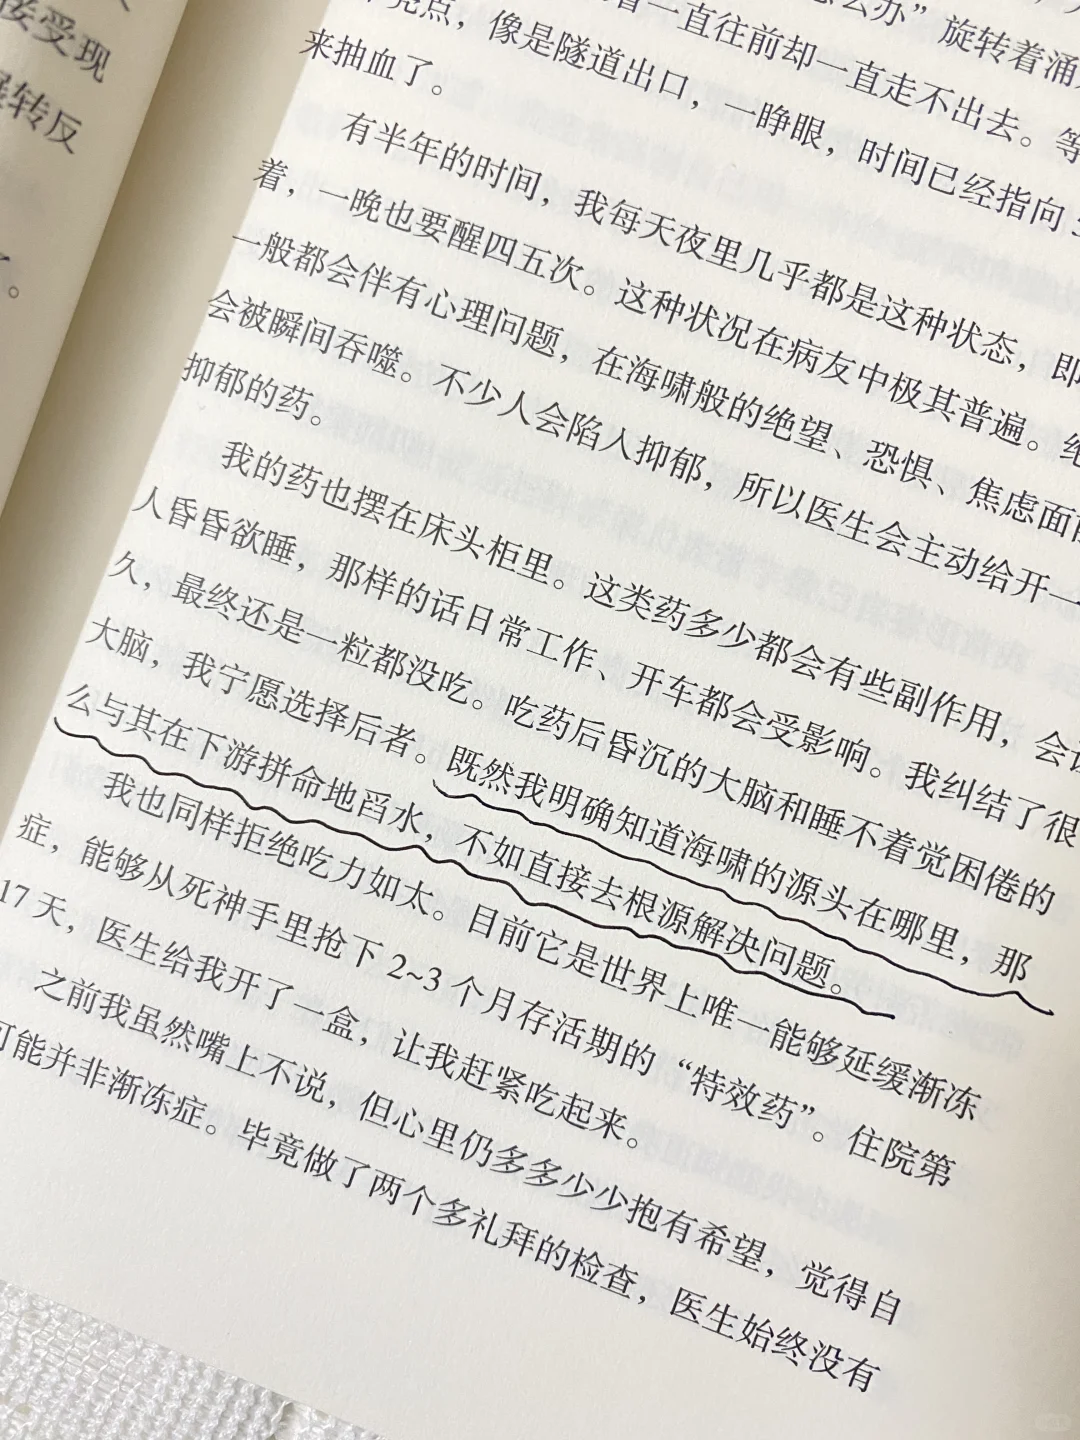 接受现
辗转反
了。
怎么办”旋转着涌
着一直往前却一直走不出去。等
亮点，像是隧道出口，一睁眼，时间已经指向
来抽血了。
有半年的时间，我每天夜里几乎都是这种状态，即
着，一晚也要醒四五次。这种状况在病友中极其普遍。绝
一般都会伴有心理问题，在海啸般的绝望、恐惧、焦虑面前
会被瞬间吞噬。不少人会陷入抑郁，所以医生会主动给开一
抑郁的药。
我的药也摆在床头柜里。这类药多少都会有些副作用，会让
人昏昏欲睡，那样的话日常工作、开车都会受影响。我纠结了很
久，最终还是一粒都没吃。吃药后昏沉的大脑和睡不着觉困倦的
大脑，我宁愿选择后者。既然我明确知道海啸的源头在哪里，那
么与其在下游拼命地舀水，不如直接去根源解决问题。
我也同样拒绝吃力如太。目前它是世界上唯一能够延缓渐冻
症，能够从死神手里抢下 2~3 个月存活期的“特效药”。住院第
17 天，医生给我开了一盒，让我赶紧吃起来。
之前我虽然嘴上不说，但心里仍多多少少抱有希望，觉得自
可能并非渐冻症。毕竟做了两个多礼拜的检查，医生始终没有